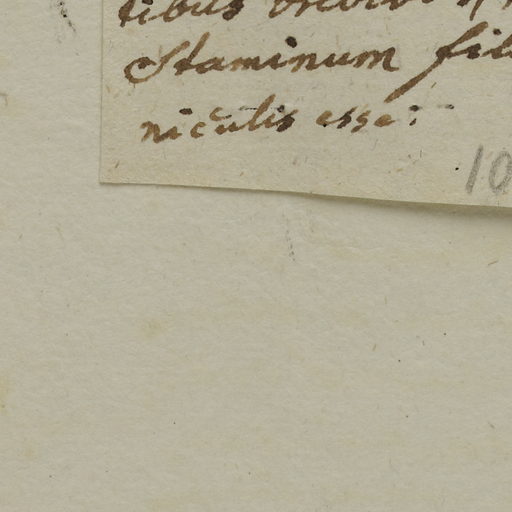 tibus
Staminum fil
niculis esse:
10